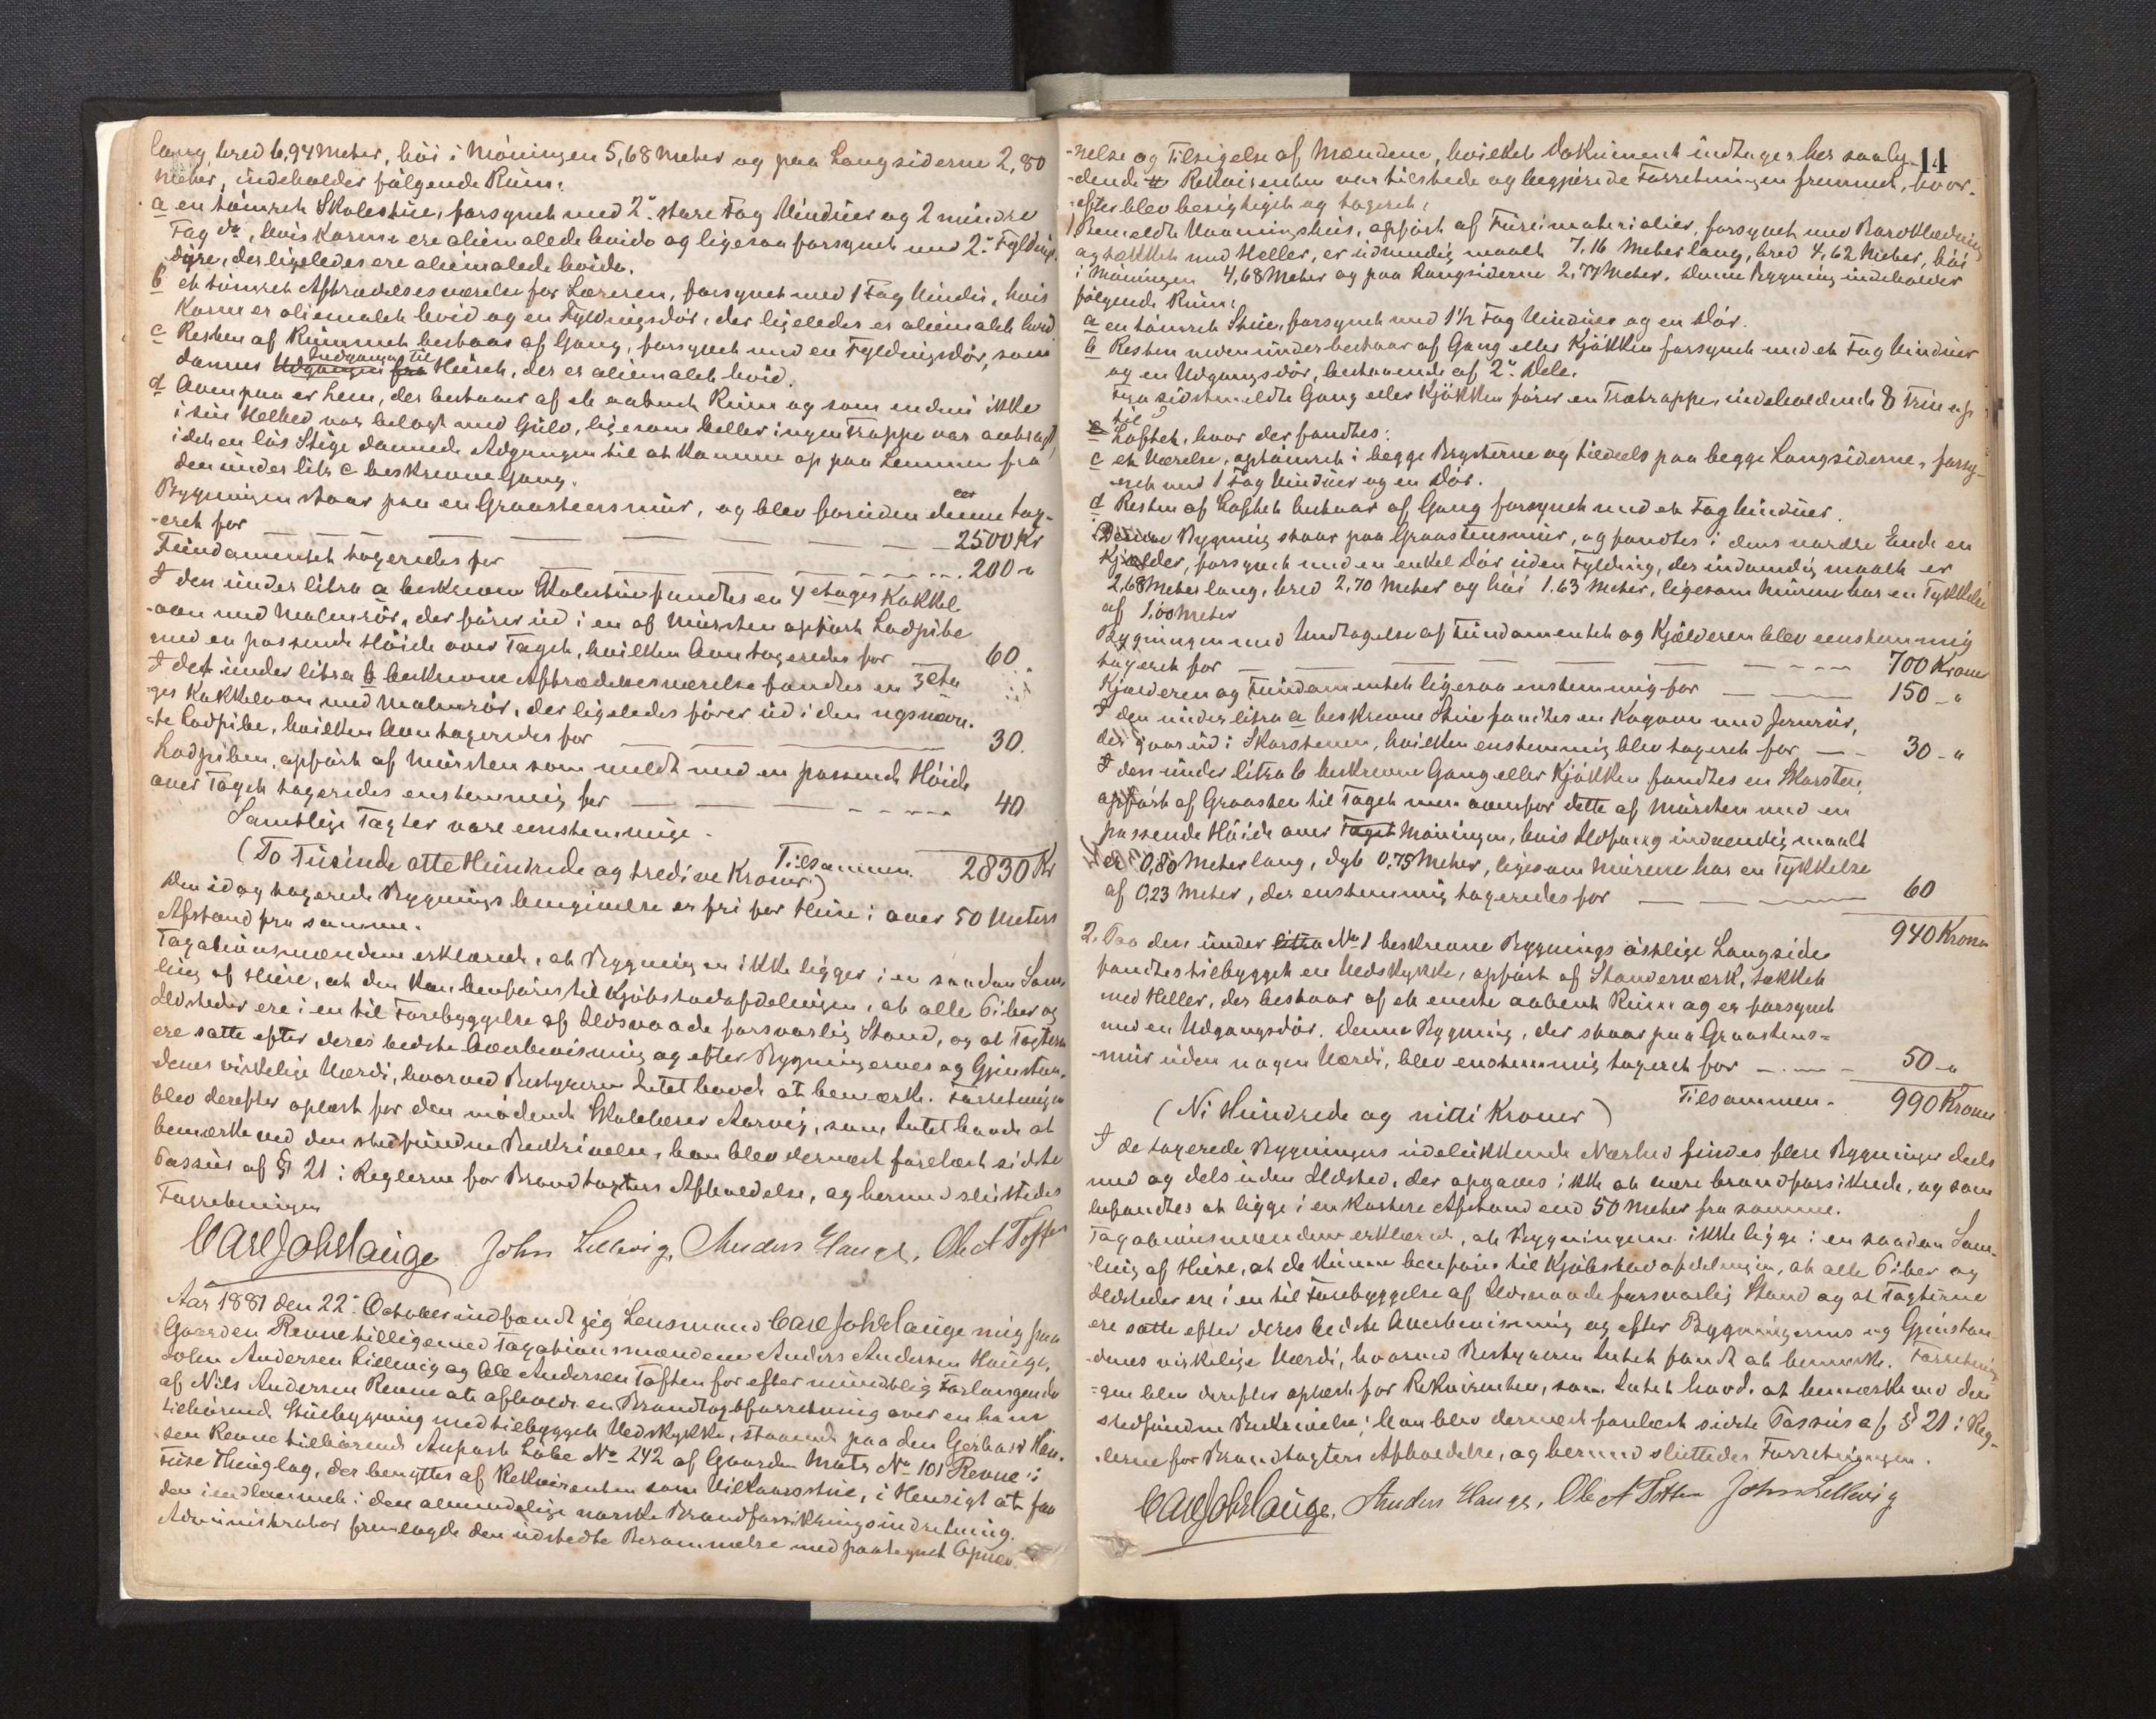 lang, bred 6,94 Meter, höi i Möningen 5,68 Meter og paa Langsiderne 2,80
Meter, indeholder fölgende Rum:
a en tömret Skolestue, forsynet med 2de store Fag Vinduer og 2 mindre
Fag do, hvis Karme ere oliemalede hvide og ligesaa forsynet med 2de Fyldings-
döre, der ligeledes ere oliemalede hvide.
b et tömret Aftrædelsesværelse for Læreren, forsynet med 1 Fag Vindue, hvis
Karm er oliemalet hvid og en Fyldingsdör, der ligeledes er oliemalet hvid
c Resten af Rummet bestaar af Gang, forsynet med en Fyldingsdör, som
danner Udgangen fra Indgangen til Huset, der er oliemalet hvid.
d Ovenpaa er Lem, der bestaar af et aabent Rum og som endnu ikke
i sin Helhed var belagt med Gulv, ligesom heller ingen Trappe var anbragt,
idet en lös Stige dannede Adgangen til at komme op paa Lemmen fra
den under litr. c beskrevne Gang.
Bygningen staar paa en Graasteensmur, og blev foruden denne tax-
eret for 2500 Kr
Fundamentet taxeredes for 200 "
I den under litra a beskrevne Skolestue fandtes en 4 etages Kakkel-
ovn med Malmrör, der förer ud i en af Mursten opfört Lodpibe
med en passende Höide over Taget, hvilken Ovn taxeredes for 60.
I det under litra b beskrevne Aftrædelsesværelse fandtes en 3 eta-
ges Kakkelovn med Malmrör, der ligeledes förer ud i den ugsnævn-
te Lodpibe, hvilken Ovn taxeredes for 30.
Lodpiben, opfört af Mursten som meldt med en passende Höide
over Taget taxeredes enstemmig for 40
Samtlige Taxter vare eenstemmige.
Tilsammen 2830 Kr
(To Tusinde otte Hundrede og tredive Kroner)
Den idag taxerede Bygnings omgivelse er fri for Huse i over 50 Meters
Afstand fra samme.
Taxationsmændene erklærede, at Bygningen ikke ligger i en saadan Sam-
ling af Huse, at den kan henföres til Kjöbstadafdelingen, at alle Piber og
Ildsteder ere i en til Forebyggelse af Ildsvaade forsvarlig Stand, og at Taxterne
ere satte efter deres bedste Overbevisning og efter Bygningernes og Gjenstan-
denes virkelige Værdi, hvorved Bestyreren Intet havde at bemærke. Forretningen
blev derefter oplæst for den mödende Skolelærer Aarvig, som Intet havde at
bemærke ved den stedfundne Beskrivelse, han blev dernæst forelæst sidste
Passus af § 21 i Reglerne for Brandtaxters Afholdelse, og hermed sluttedes
Forretningen
Carl Joh Hauge John Lillevig, Anders Hauge, Ole A Toften
Aar 1881 den 22de October indfandt jeg Lensmand Carl Joh Hauge mig paa
Gaarden Revne tilligemed Taxationsmændene Anders Andersen Hauge,
John Andersen Lillevig og Ole Andersen Toften for efter mundtlig Forlangende
af Nils Andersen Revne at afholde en Brandtaxtforretning over en ham
tilhörende Stuebygning med tilbygget Vedskykke, staaende paa den Gerhard Han-
sen Revne tilhörende Anpart Löbe No 242 af Gaarden Matr. No 101 Revne i
Fuse Thinglag, der benyttes af Rekvirenten som Vilkaarsstue, i Hensigt at faa
den indlemmet i den almindelige norske Brandforsikringsindretning.
Administrator fremlagde den udstedte Berammelse med paategnet Opnæv-
14
-nelse og Tilsigelse af Mændene, hvilket Dokument indtages her saaly-
-dende. Rekvirenten var tilstede og begjerede Forretningen fremmet, hvor-
efter blev besigtiget og taxeret:
1) Bemeldte Vaaningshus, opfört af Furumaterialier, forsynet med Bordklædning
og tækket med Heller, er udvendig maalt 7,16 Meter lang, bred 4,62 Meter, höi
i Möningen 4,68 Meter og paa Langsiderne 2,77 Meter. Denne Bygning indeholder
fölgende Rum:
a en tömret Stue, forsynet med 1½ Fag Vinduer og en Dör.
b Resten nedenunder bestaar af Gang eller Kjökken forsynet med et Fag Vinduer
og en Udgangsdör, bestaaende af 2de Dele.
Fra sidstmeldte Gang eller Kjökken förer en Trætrappe, indeholdende 8 Trin op
til Loftet, hvor der fandtes:
c et Værelse, optömret i begge Brysterne og tildeels paa begge Langsiderne, forsy-
-net med 1 Fag Vinduer og en Dör.
d Resten af Loftet bestaar af Gang forsynet med et Fag Vinduer.
Denne Bygning staar paa Graastensmur, og fandtes i dens nordre Ende en
Kjælder, forsynet med en enkel Dör uden Fylding, der indvendig maalt er
2,68 Meter lang, bred 2,70 Meter og höi 1.63 Meter, ligesom Murene har en Tykkelse
af 1.00 Meter
Bygningen med Undtagelse af Fundamentet og Kjælderen blev eenstemmig
taxeret for 700 Kroner
Kjælderen og Fundamentet ligesaa enstemmig for 150 - "
I den under litra a beskrevne Stue fandtes en Kogovn med Jernrör,
der gaar ud i Skorstenen, hvilken enstemmig blev taxeret for 30 - "
I den under litra b beskrevne Gang eller Kjökken fandtes en Skorsten,
opfört af Graasten til Taget men ovenfor dette af Mursten med en
passende Höide over Taget Möningen, hvis Ildsteg indvendig maalt
er 0,80 Meter lang, dyb 0,75 Meter, ligesom Murene har en Tykkelse
af 0,23 Meter, der enstemmig taxeredes for 60
940 Kroner
2. Paa den under litra No 1 beskrevne Bygnings östlige Langside
fandtes tilbygget en Vedskykke, opfört af Standerværk, tækket
med Heller, der bestaar af et eneste aabent Rum og er forsynet
med en Udgangsdör. Denne Bygning, der staar paa Graastens-
-mur uden nogen Værdi, blev enstemmig taxeret for 50 - "
Tilsammen - 990 Kroner
(Ni Hundrede og nitti Kroner)
I de taxerede Bygningers udelukkende Nærhed findes flere Bygninger deels
med og dels uden Ildsted, der opgaves ikke at være brandforsikrede, og som
befandtes at ligge i en kortere Afstand end 50 Meter fra samme.
Taxationsmændene erklærede, at Bygningerne ikke ligge i en saadan Sam-
-ling af Huse, at de kunne henföres til Kjöbstadafdelingen, at alle Piber og
Ildsteder ere i en til Forebyggelse af Ildsvaade forsvarlig Stand og at Taxterne
ere satte efter deres bedste Overbevisning og efter Bygningernes og Gjenstan-
-denes virkelige Værdi, hvorved Bestyreren Intet fandt at bemærke. Forretnin-
-gen blev derefter oplæst for Rekvirenten, som Intet havde at bemærke ved den
stedfundne Beskrivelse; han blev dernæst forelæst sidste Passus af § 21 i Reg-
-lerne for Brandtaxters Afholdelse, og hermed sluttedes Forretningen.
Carl Joh Hauge, Anders Hauge, Ole A Toften John Lillevig